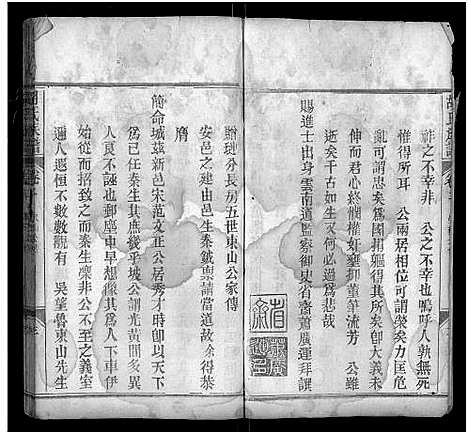 祚之不幸非 公之不幸也嗚呼人孰無死
得所耳 公兩居相位可謂榮矣力匡危
亂可謂忠矣為國捐軀得其所矣即大義未
伸而君心終憫權奸褒抑董筆流芳 公雖
逝矣千古如生又何憾焉又何悲哉
賜進士出身雲南道監察御史省齋蕭廣運拜譔
贈璉分長房五世東山公家傳
安邑之建由邑生秦鉞稟請當道故余得恭
膺
簡命城茲新邑宋范文正公居秀才時即以天下
為己任秦生其庶幾乎坡公謂光黃間多異
人良不誣也郵塵中早想像其為人下車伊
始從而訪之而秦生稟非公不至之義室
邇人遐恒不數數覯有 吳華魯東山先生
胡氏族譜